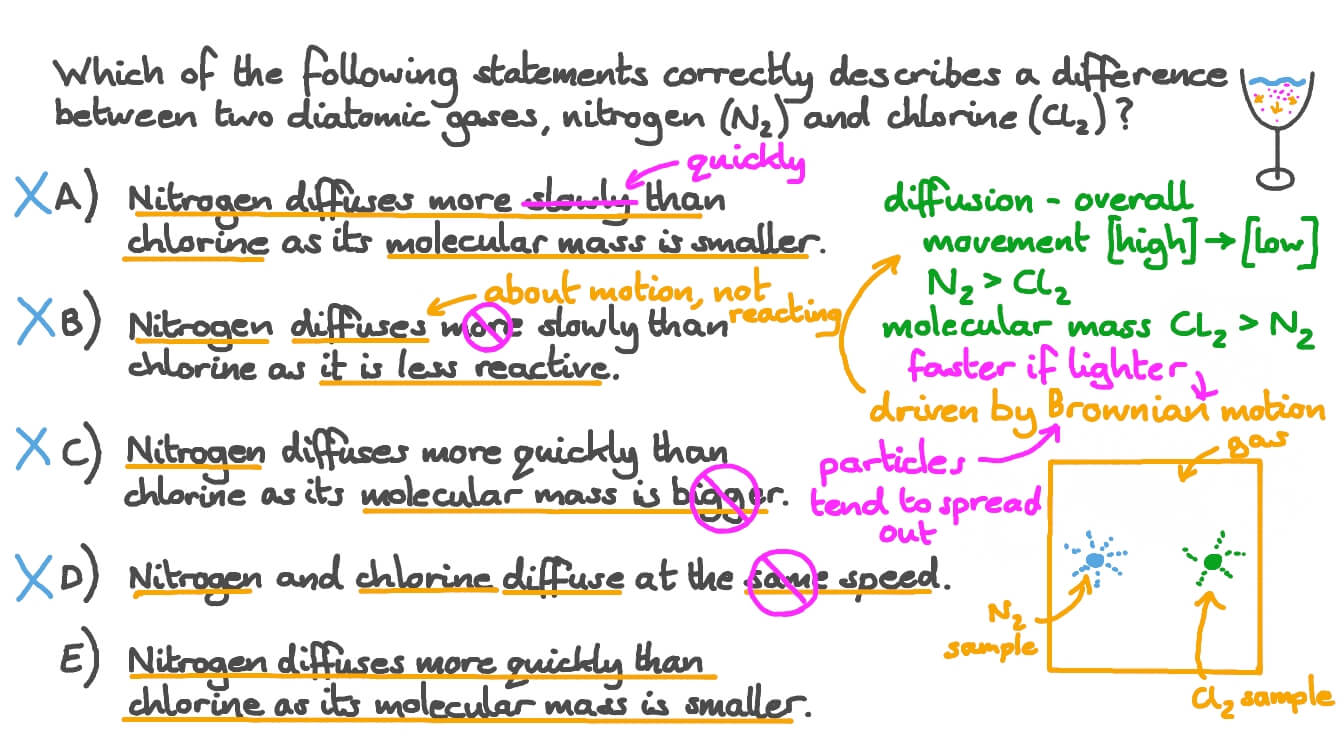 Which of the following statements correctly describes a difference
between two diatomic gases, nitrogen (N₂) and chlorine (Cl₂)?
quickly
A) Nitrogen diffuses more slowly than
chlorine as its molecular mass is smaller.
about motion, not
reacting
B) Nitrogen diffuses more slowly than
chlorine as it is less reactive.
C) Nitrogen diffuses more quickly than
chlorine as its molecular mass is bigger.
D) Nitrogen and chlorine diffuse at the same speed.
E) Nitrogen diffuses more quickly than
chlorine as its molecular mass is smaller.
diffusion - overall
movement [high]→[low]
N₂ > Cl₂
molecular mass Cl₂ > N₂
faster if lighter
driven by Brownian motion
particles
tend to spread
out
gas
N₂
sample
Cl₂ sample